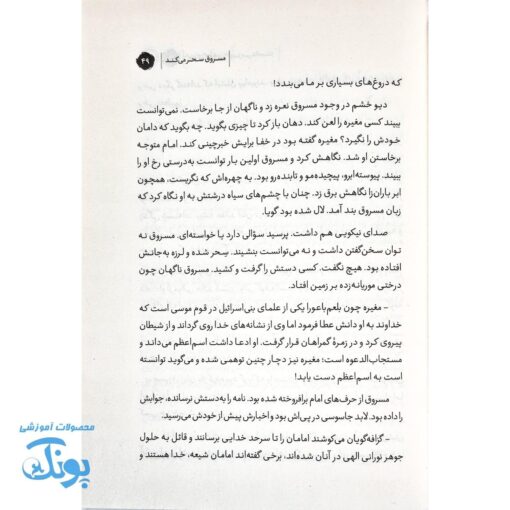 مسروق سحر می‌کند
۴۹
که دروغ‌های بسیاری بر ما می‌بندد!
دیو خشم در وجود مسروق نعره زد و ناگهان از جا برخاست. نمی‌توانست
ببیند کسی مغیره را لعن کند. دهان باز کرد تا چیزی بگوید. چه بگوید که دامان
خودش را نگیرد؟ مغیره گفته بود در خفا برایش خبرچینی کند. امام متوجه
برخاستن او شد. نگاهش کرد و مسروق اولین بار توانست به‌درستی رخ او را
ببیند. پیوسته‌ابرو، پیچیده‌مو و تابنده‌رو بود. به چهره‌اش که نگریست، همچون
ابر باران‌زا نگاهش برق زد. چنان با چشم‌های سیاه درشتش به او نگاه کرد که
زبان مسروق بند آمد. لال شده بود گویا.
صدای نیکویی هم داشت. پرسید سؤالی دارد یا خواسته‌ای. مسروق نه
توان سخن‌گفتن داشت و نه می‌توانست بنشیند. سِحر شده و لرزه به‌جانش
افتاده بود. هیچ نگفت. کسی دستش را گرفت و کشید. مسروق ناگهان چون
درختی موریانه‌زده بر زمین افتاد.
- مغیره چون بلعم باعورا یکی از علمای بنی‌اسرائیل در قوم موسی است که
خداوند به او دانش عطا فرمود اما وی از نشانه‌های خدا روی گرداند و از شیطان
پیروی کرد و در زمرهٔ گمراهان قرار گرفت. او ادعا داشت اسم‌اعظم می‌داند و
مستجاب‌الدعوه است؛ مغیره نیز دچار چنین توهمی شده و می‌گوید توانسته
است به اسم‌اعظم دست یابد!
مسروق از حرف‌های امام برافروخته شده بود. نامه را به‌دستش نرسانده، جوابش
را داده بود. لابد جاسوسی در پی‌اش بود و اخبارش پیش از خودش می‌رسید.
- گزافه‌گویان می‌کوشند امامان را تا سرحد خدایی برسانند و قائل به حلول
جوهر نورانی الهی در آنان شده‌اند، برخی گفته‌اند امامان شیعه، خدا هستند و
محصولات آموزشی
پونک